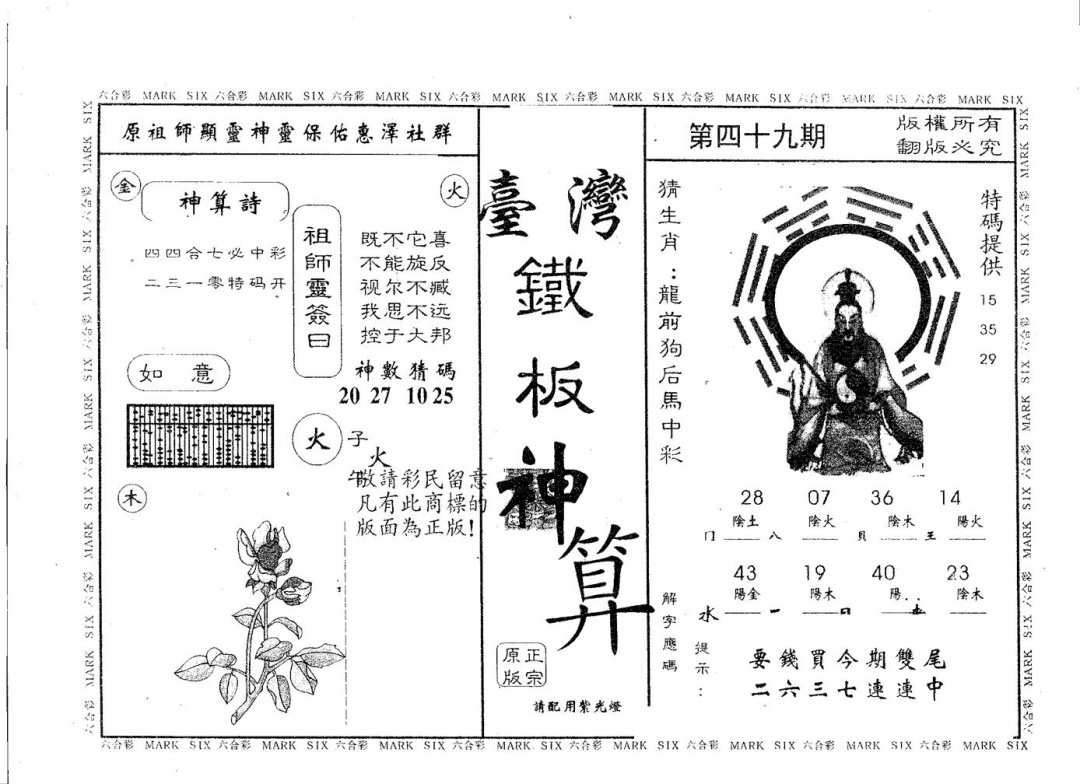 六合彩 MARK SIX 六合彩 MARK SIX 六合彩 MARK SIX 六合彩 MARK SIX 六合彩 MARK SIX 六合彩 MARK SIX 六合彩 MARK SIX 六合彩 MARK SIX
原祖師顯靈神靈保佑惠澤社群
金
神算詩
火
四四合七必中彩
二三一零特码开
祖師靈簽曰
既不它喜
不能旋反
视尔不臧
我思不远
控于大邦
神數猜碼
20 27 10 25
如意
火
子
火
午
木
敬請彩民留意
凡有此商標的
版面為正版!
臺灣
鐵
板
神
算
正宗
原版
請配用紫光燈
第四十九期
版權所有
翻版必究
猜生肖：龍前狗后馬中彩
特碼提供
15
35
29
28 07 36 14
陰土 陰火 陰木 陽火
门 八 貝 王
43 19 40 23
陽金 陽木 陽 陰木
水 一 口
解字應碼
提示：
要錢買今期雙尾
二六三七連連中
六合彩 MARK SIX 六合彩 MARK SIX 六合彩 MARK SIX 六合彩 MARK SIX 六合彩 MARK SIX 六合彩 MARK SIX 六合彩 MARK SIX 六合彩 MARK SIX